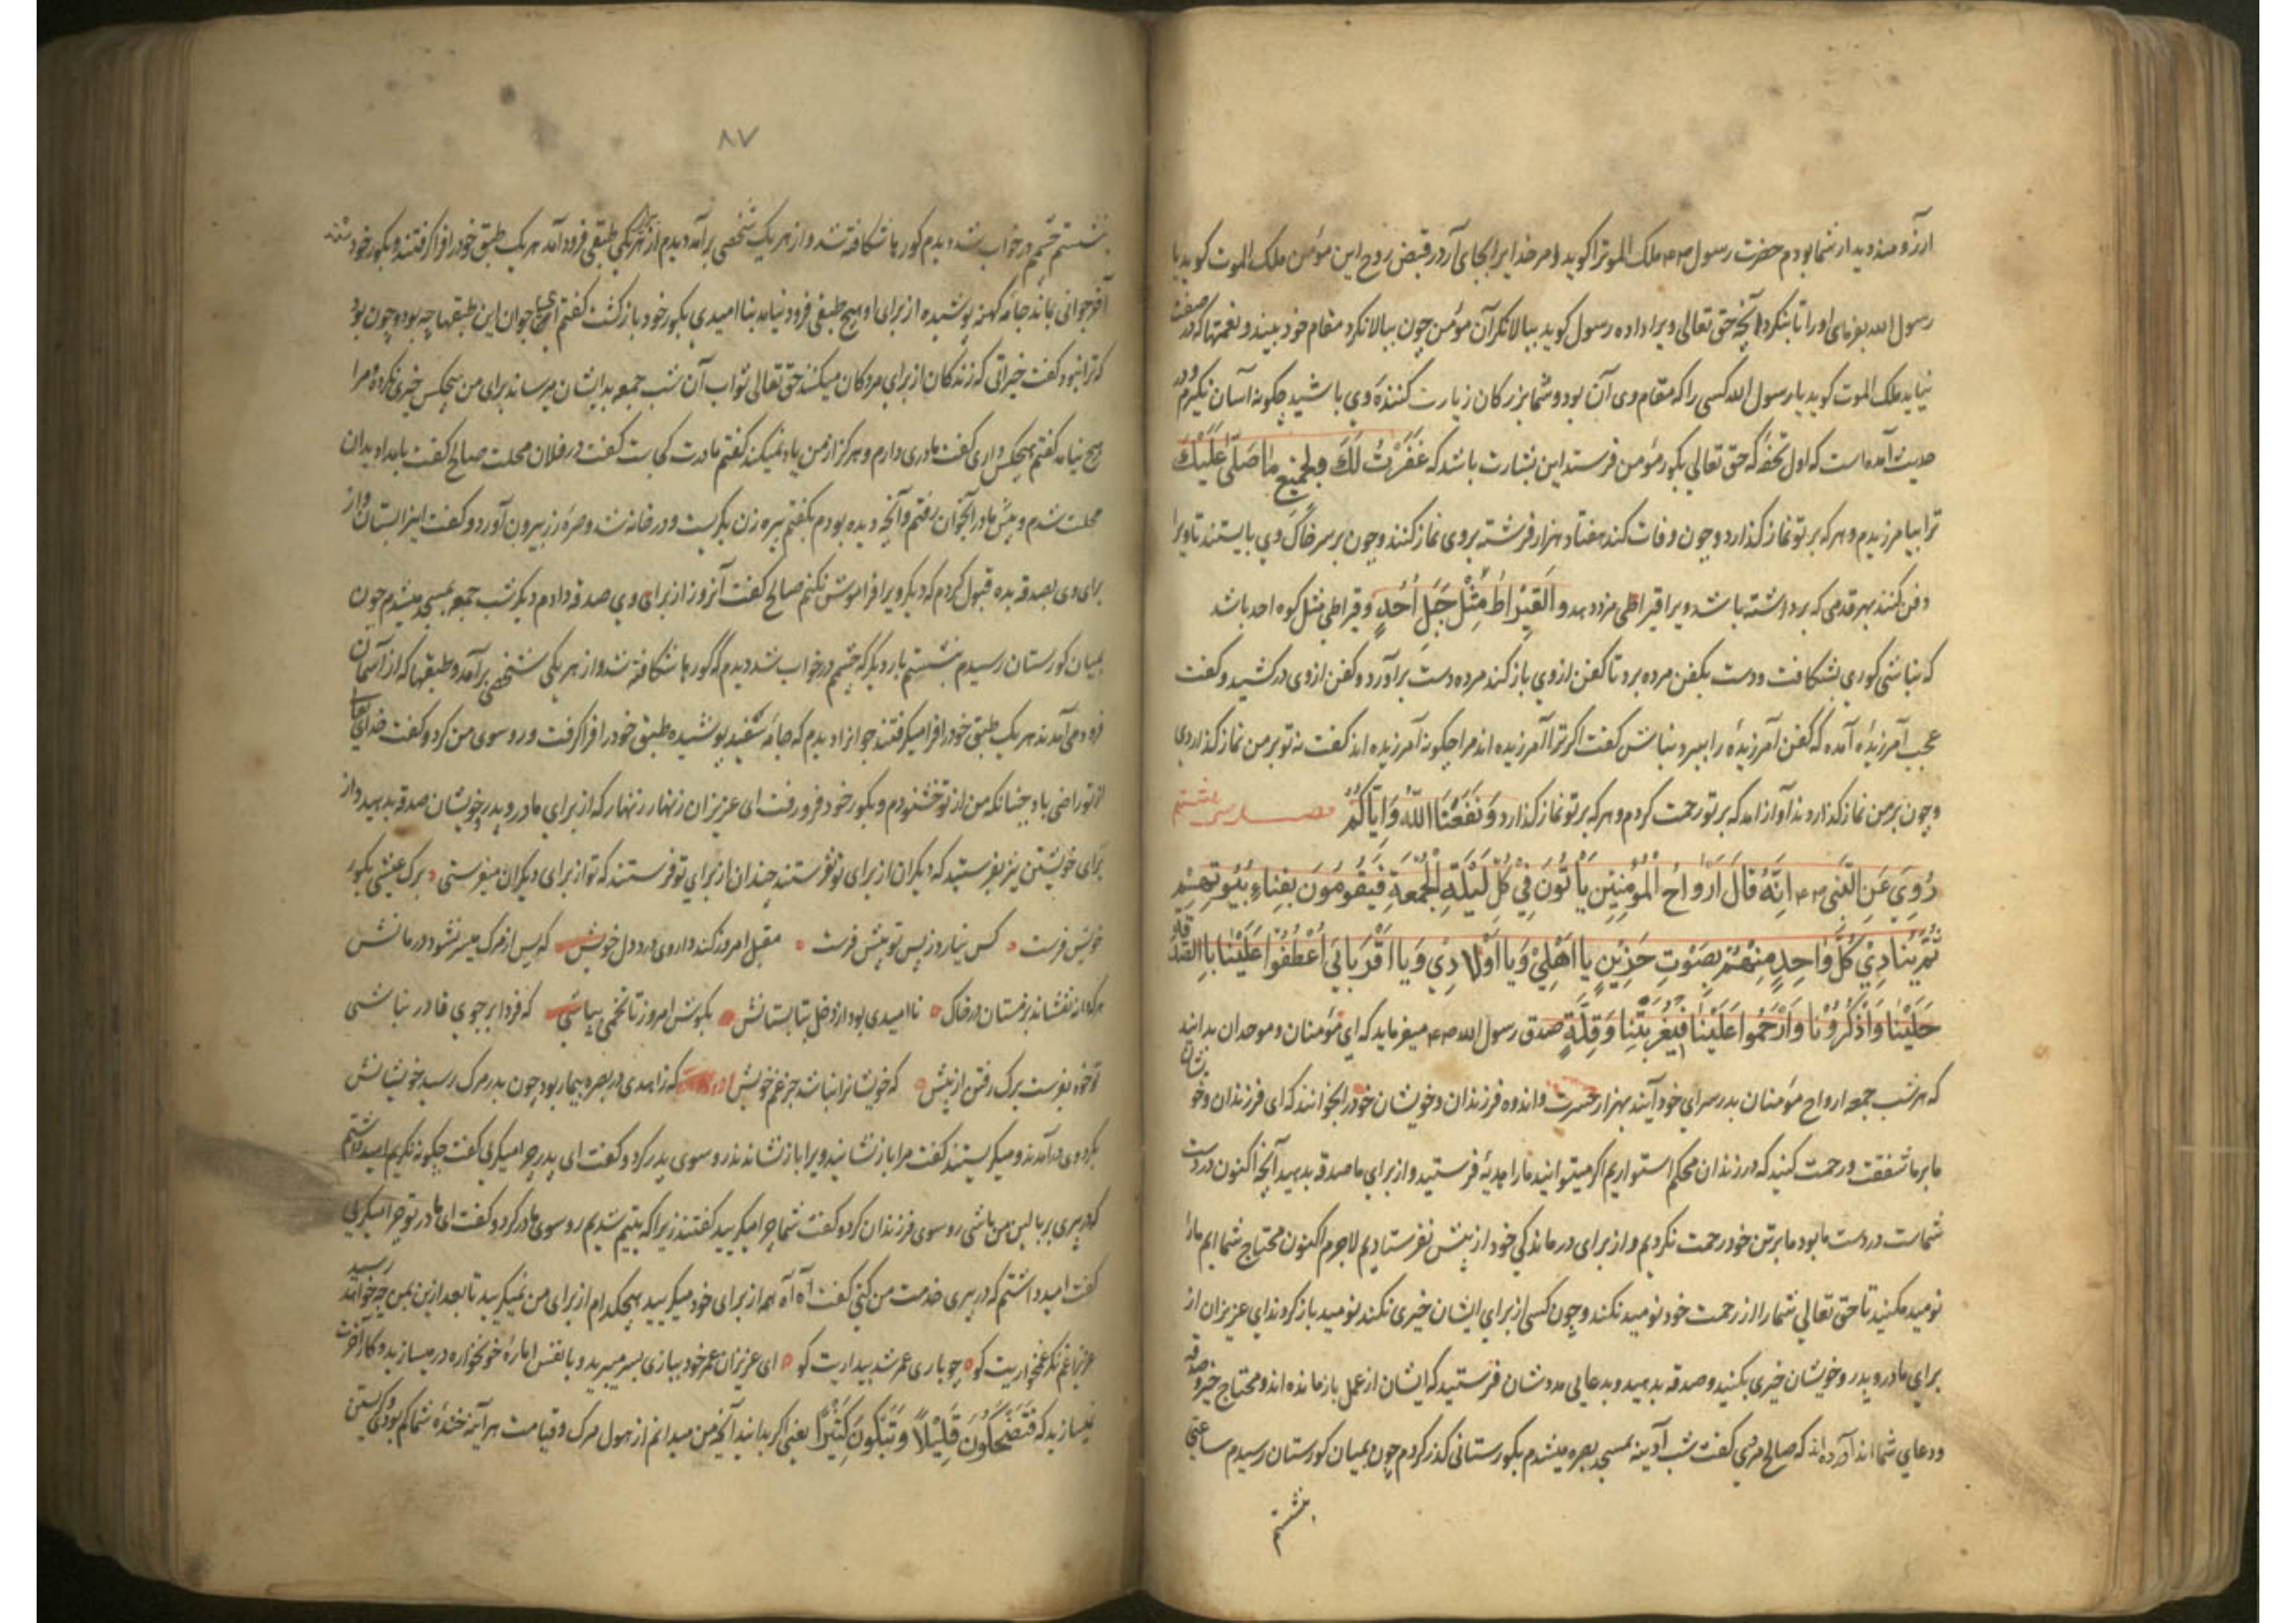 ارزومند دیدار شما بودم حضرت رسول ۴م ملک الموترا کوید امر خدایرا بجای آر در قبض روح این مؤمن ملک الموت کوید یا
رسول الله بفرمای او را تا بنکرد آنچه حق تعالی ویرا داده رسول کوید ببالا نکر آن مؤمن چون ببالا نکرد مقام خود بیند و نعمتها که در صفت
نیاید ملک الموت کوید یا رسول الله کسی را که مقام وی آن بود و شما بزرکان زیارت کننده وی باشید چکونه آسان نکیرم و در
حدیث آمده است که اول تحفه که حق تعالی بکور مؤمن فرستد این بشارت باشد که غَفَرْتُ لَكَ وَلِجَمِيْعِ مَا صَلّٰى عَلَيْكَ
ترا بیامرزیدم و هرکه بر تو نماز کذارد و چون وفات کند هفتاد هزار فرشته بروی نماز کنند و چون بر سر خاک وی بایستند تا ویرا
دفن کنند بهر قدمی که برداشته باشد ویرا قیراطی مزد دهد و اَلْقِيْرَاطُ مِثْلُ جَبَلِ اُحُدٍ و قیراطی مثل کوه احد باشد
که نباشی کوری بشکافت و دست بکفن مرده برد تا کفن از وی باز کند مرده دست برآورد و کفن از وی درکشید و کفت
عجب آمرزیدۀ آمده که کفن آمرزیدۀ را ببرد نباش کفت اکر ترا آمرزیده اند مرا چکونه آمرزیده اند کفت نه تو بر من نماز کذاردی
و چون بر من نماز کذاردند آواز آمد که بر تو رحمت کردم و هرکه بر تو نماز کذارد وَ نَفَعَنَا اللّٰهُ وَاِيَّاكُمْ
رُوِيَ عَنِ النَّبِي ۴م اِنَّهُ قَالَ اَرْوَاحُ الْمُؤْمِنِيْنَ يَأْتُوْنَ فِيْ كُلِّ لَيْلَةِ الْجُمُعَةِ فَيَقُوْمُوْنَ بِفِنَاءِ بُيُوْتِهِمْ
ثُمَّ يُنَادِيْ كُلُّ وَاحِدٍ مِنْهُمْ بِصَوْتٍ حَزِيْنٍ يَا اَهْلِيْ وَيَا اَوْلَادِيْ وَيَا اَقْرَبَائِيْ اُعْطُفُوْا عَلَيْنَا بِالصَّدَقَةِ
عَلَيْنَا وَاذْكُرُوْنَا وَارْحَمُوا عَلَيْنَا فِيْ غُرْبَتِنَا وَ قِلَّةٍ صدق رسول الله ۴م میفرماید که ای مؤمنان و موحدان بدانید
که هر شب جمعه ارواح مؤمنان بدر سرای خود آیند بهزار حسرت و اندوه فرزندان و خویشان خود را بخوانند که ای فرزندان و خویشان
ما بر ما شفقت و رحمت کنید که در زندان محکم استواریم اکر میتوانید ما را هدیۀ فرستید و از برای ما صدقه بدهید آنچه اکنون در دست
شماست در دست ما بود ما بر تن خود رحمت نکردیم و از برای درماندکی خود از پیش نفرستادیم لاجرم اکنون محتاج شماایم ما را
نومید مکنید تا حق تعالی شما را از رحمت خود نومید نکند و چون کسی از برای ایشان خیری نکند نومید باز کردند ای عزیزان از
برای مادر و پدر و خویشان خیری بکنید و صدقه بدهید و بدعایی مددشان فرستید که ایشان از عمل باز مانده اند و محتاج خیر و صدقه
و دعای شما اند آورده اند که صالح مری کفت شب آدینه بمسجد بصره میشدم بکورستانی کذر کردم چون بمیان کورستان رسیدم ساعتی
بنشستم
۸۷
بنشستم چشمم در خواب شد دیدم کورها شکافته شد و از هر یک شخصی برآمد دیدم از بهر هریکی طبقی فرود آمد هر یک طبق خود را فرا کرفتند و بکور خود شدند
آخر جوانی بماند جامه کهنه پوشیده از برای او هیچ طبقی فرود نیامد بناامیدی بکور خود باز کشت کفتم ای جوان این طبقها چه بود و چون بود
که ترا نبود کفت خیراتی که زندکان از برای مردکان میکنند حق تعالی ثواب آن شب جمعه بدیشان میرساند برای من هیچکس خیری نکرده مرا
هیچ نیامد کفتم هیچکس داری کفت مادری دارم و هرکز از من یاد نمیکند کفتم مادرت کجاست کفت در فلان محلت صالح کفت بامداد بدان
محلت شدم و پیش مادر آنجوان رفتم و آنچه دیده بودم بکفتم پیره زن بکریست و در خانه شد و صره زر بیرون آورد و کفت اینرا بستان و از
برای وی بصدقه بده قبول کردم که دیکر ویرا فراموش نکنم صالح کفت آنروز از برای وی صدقه دادم دیکر شب جمعه بمسجد میشدم چون
بمیان کورستان رسیدم بنشستم بار دیکر که چشمم در خواب شد دیدم که کورها شکافته شد و از هر یکی شخصی برآمد و طبقها که از آسمان
فرود می آمدند هر یک طبق خود را فرا میکرفتند جوانرا دیدم که جامۀ سفید پوشیده طبق خود را فرا کرفت و رو سوی من کرد و کفت خدای تعالی
از تو راضی باد چنانکه من از تو خشنودم و بکور خود فرو رفت ای عزیزان زنهار زنهار که از برای مادر و پدر خویشان صدقه بدهید و از
برای خویشتن نیز بفرستید که دیکران از برای تو نفرستند چندان از برای تو فرستند که تو از برای دیکران میفرستی ه برک عیشی بکور
خویش فرست ه کس نیارد ز پس تو پیش فرست ه مقبل امروز کند داروی درد دل خویش که پس از مرک میسر نشود درمانش
هرکه دانه نفشاند بزمستان در خاک ه ناامیدی بود از دخل بتابستانش بکوش امروز تا تخمی بپاشی که فردا بر جوی قادر نباشی
تو خود بفرست برک رفتن از پیش ه که خویشانرا نباشد جز غم خویش که زاهدی در بصره بیمار بود چون بدر مرک رسید خویشانش
بکرد وی درآمدند و میکریستند کفت مرا باز نشانید ویرا باز نشاندند رو سوی پدر کرد و کفت ای پدر چرا میکریی کفت چکونه نکریم امید داشتم
که در پیری بر بالین من باشی رو سوی فرزندان کرد و کفت شما چرا میکریید کفتند زیرا که یتیم شدیم رو سوی مادر کرد و کفت ای مادر تو چرا میکریی
کفت امید داشتم که در پیری خدمت من کنی کفت آه آه همه از برای خود میکریید هیچکدام از برای من نمیکریید تا بعد ازین بمن چه خواهد رسید
غمخواریت کو ه چو باری عمر شد بیداریت کو ه ای عزیزان عمر خود ببازی بسر میبرید و با نفس امارۀ خونخواره درمیسازید و کار آخرت
نمیسازید که فَتَضْحَكُوْنَ قَلِيْلًا وَ تَبْكُوْنَ كَثِيْرًا یعنی اکر بدانید آنچه من میدانم از هول مرک و قیامت هر آینه خندۀ شما کم بودی و کریستن